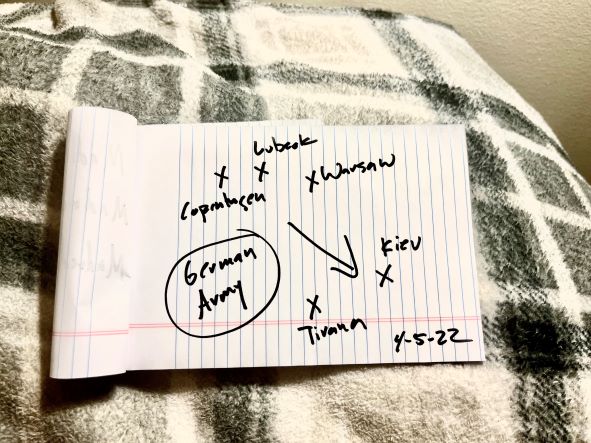 Lubeck
X X
X Warsaw
Copenhagen
German
Army
Kiev
X
X
Tirana
4-5-22